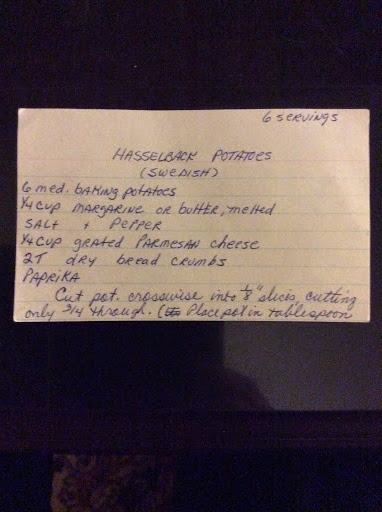 6 servings
HASSELBACK POTATOES
(SWEDISH)
6 med. BAKING POTATOES
1/4 CUP MARGARINE OR butter, melted
SALT + PEPPER
1/4 CUP grated PARMESAN cheese
2T dry bread crumbs
PAPRIKA
Cut pot. crosswise into 1/8" slices, cutting
only 3/4 through. (Place pot in tablespoon